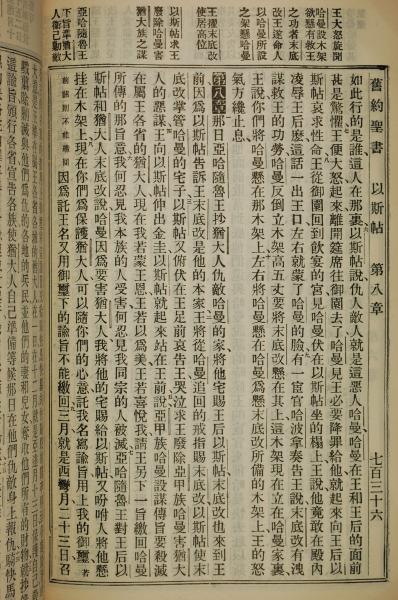 舊約聖書　以斯帖　第八章　七百三十六
王大怒旋聞
哈曼設木架
欲懸有救王
之功者末底
改王遂命人
以哈曼所設
之架懸哈曼
王擢末底改
使居高位
以斯帖求王
廢除哈曼害
猶大族之謀
亞哈隨魯王
下旨準猶大
人衞己勦敵
如此行的是誰這人在那裏以斯帖說仇人敵人就是這惡人哈曼哈曼在王和王后的面前
甚是驚惶王便大怒起來離開筵席往御園去了哈曼見王必要降罪給他就起來向王后以
斯帖哀求性命王從御園回到飲宴的宮見哈曼伏在以斯帖坐的榻上王說他竟敢在殿內
凌辱王后麽這話一出王口左右就蒙了哈曼的臉有一宦官哈波拿奏告王說末底改有洩
謀救王的功勞哈曼反倒立木架高五丈要將末底改懸在其上這木架現立在哈曼家裏
王說你們將哈曼懸在那木架上左右將哈曼懸在哈曼爲懸末底改所備的木架上王的怒
氣方纔止息
第八章 那日亞哈隨魯王抄猶大人仇敵哈曼的家將他宅賜王后以斯帖末底改也來到王
前因爲以斯帖告訴王末底改是他的本家王將從哈曼追回的戒指賜末底改以斯帖使末
底改掌管哈曼的宅子以斯帖又俯伏在王足前哀告王哭泣求王廢除亞甲族哈曼害猶大
人的惡謀王向以斯帖伸出金圭以斯帖就起來站在王前說亞甲族哈曼設謀傳旨要殺滅
在屬王各省的猶大人現在我若蒙王恩王若以爲美王若喜悅我請王另下一旨繳回哈曼
所傳的那旨意我何忍見我本族的人受害何忍見我同宗的人被滅亞哈隨魯王對王后以
斯帖和猶大人末底改說哈曼因爲要害猶大人我將他的宅賜給以斯帖又吩咐人將他懸
掛在木架上現在你們爲保護猶大人可以隨你們的心意託我名寫諭旨用上我的御璽著
舊諭則不能繳回 因爲託王名又用御璽下的諭旨不能繳回三月就是西彎月二十三日召